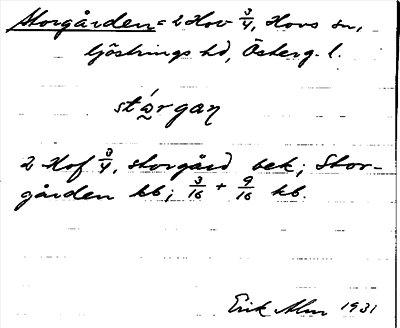 Storgården = 2 Hov 3/4, Hovs sn,
Göstrings hd, Österg. l.
stárgan
2 Hof 3/4, storgård bek; Stor-
gården kb; 3/16 + 9/16 kb.
Erik Alm 1931